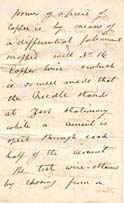 power of a piece of
copper is by means of
a differential galvano
mapped with No 16
copper wire which
is so well made that
the needle stands
at zero stationary
while a current is
sent through each
half of the circuit
The test wire
by chaining from a